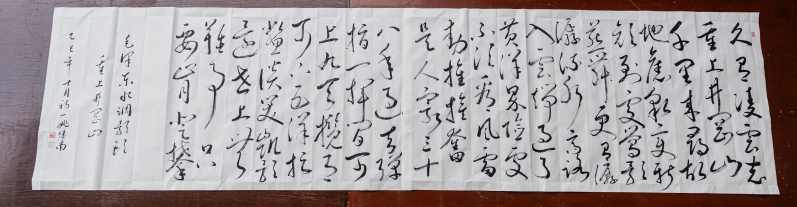 久有凌云志
重上井冈山
千里来寻故
地旧貌变新
颜到处莺歌
燕舞更有潺
潺流水高路
入云端过了
黄洋界险处
不须看风雷
动旌旗奋
是人寰三十
八年过去弹
指一挥间可
上九天揽月
可下五洋捉
鳖谈笑凯歌
还世上无
难事只
要肯登攀
毛泽东水调歌头
重上井冈山
乙巳年十月初一姚佳南